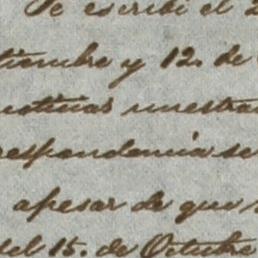 Te escribi el 2
tiembre y 12. de
motivas nuestra
respondencia se
apesar de que
del 15. de Octubre